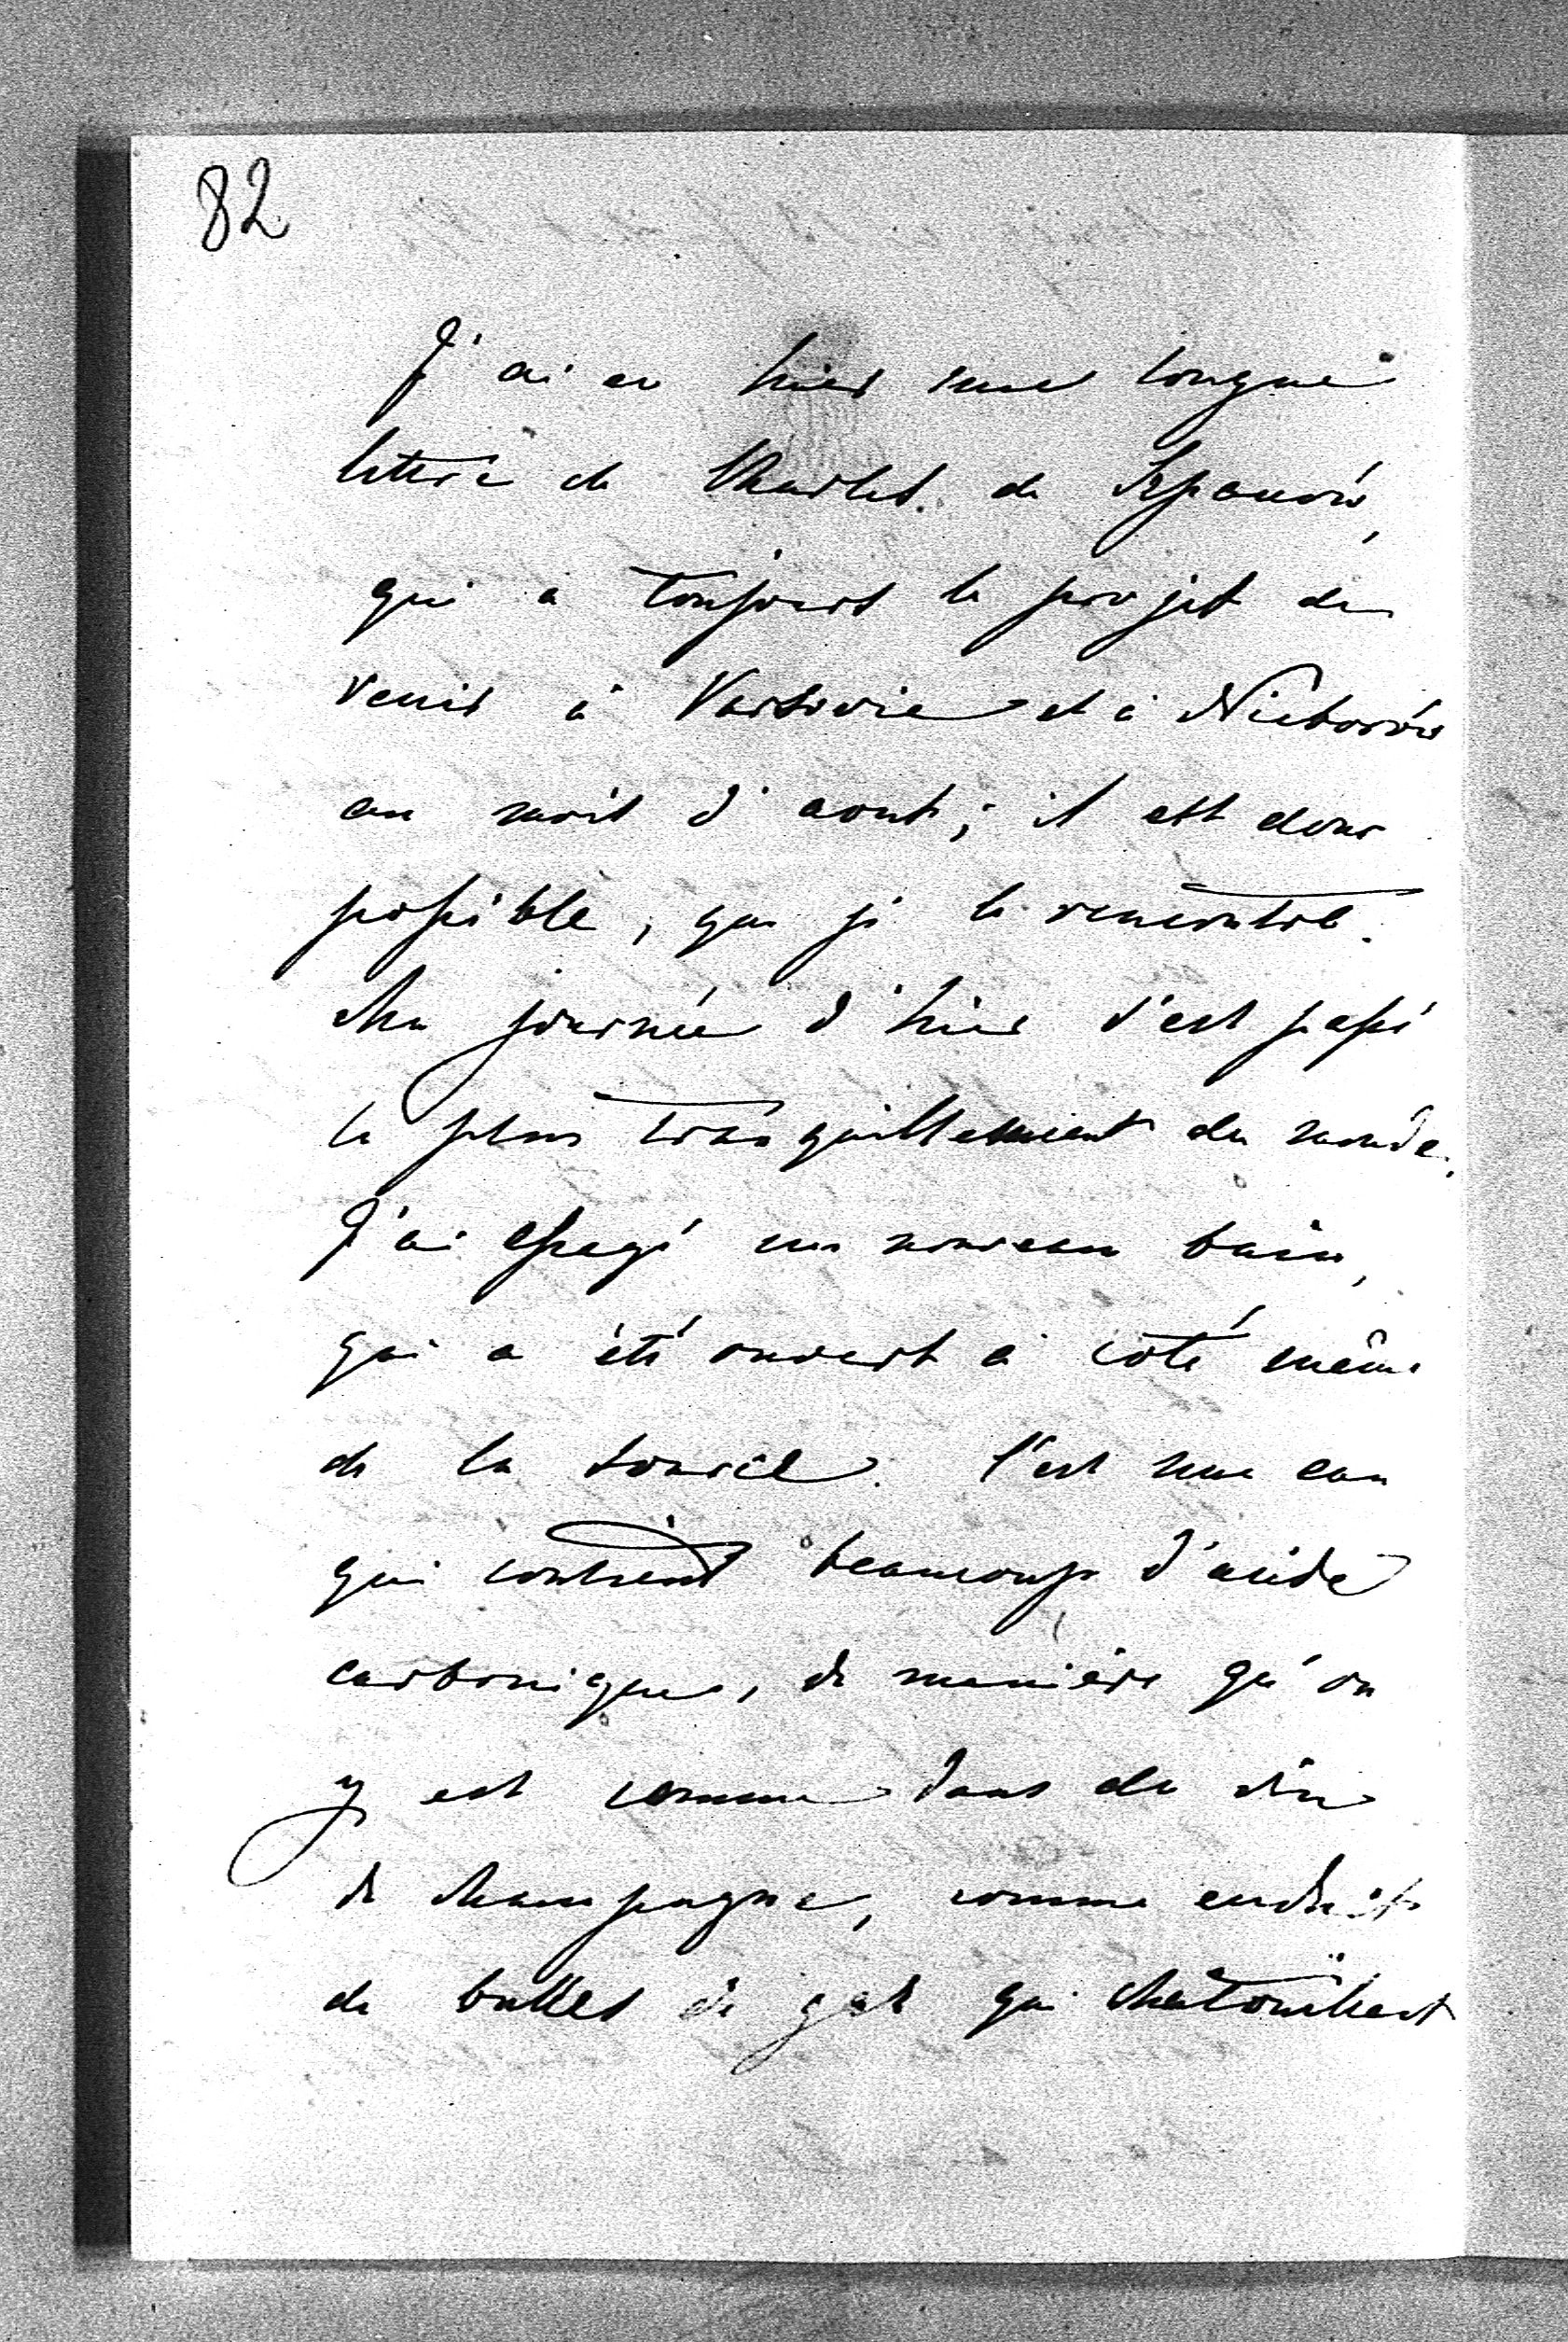 82
J'ai eu hier une longue
lettre de Charles de Szpanów,
qui a toujours le projet de
venir à Varsovie et à Nieborów
au mois d'aout; il est donc
possible, que je le rencontre.
Ma journée d'hier s'est passé
le plus tranquillement du monde.
J'ai essayé un nouveau bain,
qui a été ouvert à coté même
de la source. C'est une eau
qui contient beaucoup d'acide
carbonique, de manière qu'on
y est comme dans du vin
de champagne, comme enduit
de bulles de gas qui chatouillent